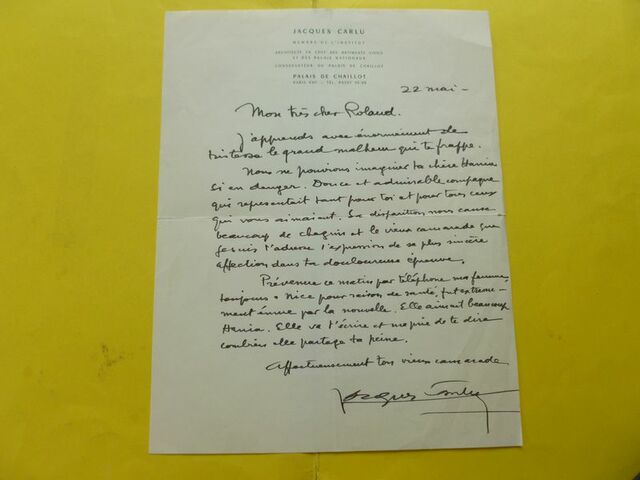 JACQUES CARLU
MEMBRE DE L'INSTITUT
ARCHITECTE EN CHEF DES BÂTIMENTS CIVILS
ET DES PALAIS NATIONAUX
CONSERVATEUR DU PALAIS DE CHAILLOT
PALAIS DE CHAILLOT
PARIS XVIe - TÉL. PASSY
22 mai -
Mon très cher Roland.
J'apprends avec énormément de
tristesse le grand malheur qui te frappe.
Nous ne pouvions imaginer ta chère Hania
si en danger. Douce et admirable compagne
qui représentait tant pour toi et pour tous ceux
qui vous aimaient. Sa disparition nous cause
beaucoup de chagrin et le vieux camarade que
je suis t'adresse l'expression de sa plus sincère
affection dans ta douloureuse épreuve.
Prévenue ce matin par téléphone ma femme,
toujours à Nice pour raison de santé, fut extrême-
ment émue par la nouvelle. Elle aimait beaucoup
Hania. Elle va t'écrire et me prie de te dire
combien elle partage ta peine.
Affectueusement ton vieux camarade
Jacques Carlu